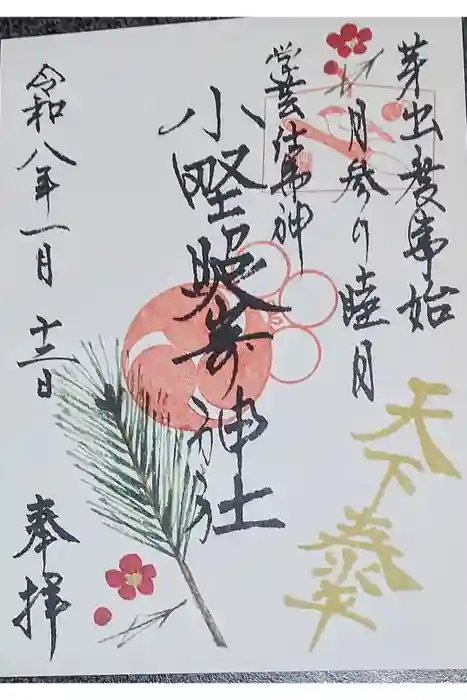 芽出度事始
月参り睦月
学芸仕事神
小野照崎神社
天下泰平
令和八年一月十三日
奉拝